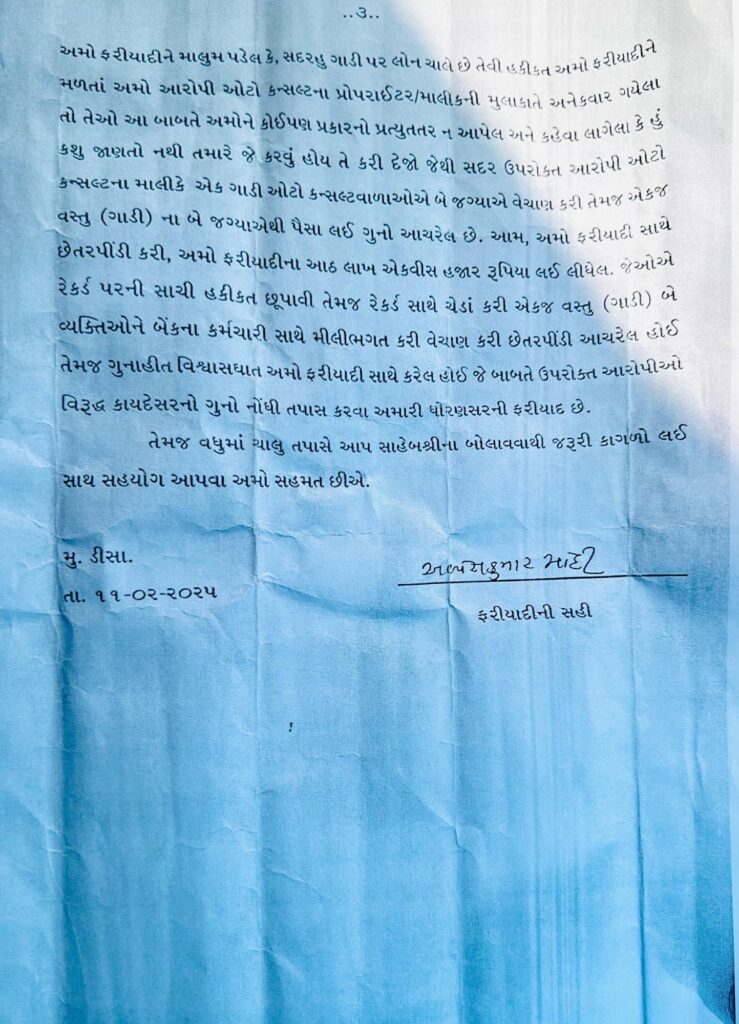 ..૩..
અમો ફરીયાદીને માલુમ પડેલ કે, સદરહુ ગાડી પર લોન ચાલે છે તેવી હકીકત અમો ફરીયાદીને
મળતાં અમો આરોપી ઓટો કન્સલ્ટના પ્રોપરાઈટર/માલીકની મુલાકાતે અનેકવાર ગયેલા
તો તેઓ આ બાબતે અમોને કોઈપણ પ્રકારનો પ્રત્યુતતર ન આપેલ અને કહેવા લાગેલા કે હું
કશુ જાણતો નથી તમારે જે કરવું હોય તે કરી દેજો જેથી સદર ઉપરોક્ત આરોપી ઓટો
કન્સલ્ટના માલીકે એક ગાડી ઓટો કન્સલ્ટવાળાઓએ બે જગ્યાએ વેચાણ કરી તેમજ એકજ
વસ્તુ (ગાડી) ના બે જગ્યાએથી પૈસા લઈ ગુનો આચરેલ છે. આમ, અમો ફરીયાદી સાથે
છેતરપીંડી કરી, અમો ફરીયાદીના આઠ લાખ એકવીસ હજાર રૂપિયા લઈ લીધેલ. જેઓએ
રેકર્ડ પરની સાચી હકીકત છૂપાવી તેમજ રેકર્ડ સાથે ચેડાં કરી એકજ વસ્તુ (ગાડી) બે
વ્યક્તિઓને બેંકના કર્મચારી સાથે મીલીભગત કરી વેચાણ કરી છેતરપીંડી આચરેલ હોઈ
તેમજ ગુનાહીત વિશ્વાસઘાત અમો ફરીયાદી સાથે કરેલ હોઈ જે બાબતે ઉપરોક્ત આરોપીઓ
વિરૂદ્ધ કાયદેસરનો ગુનો નોંધી તપાસ કરવા અમારી ધોરણસરની ફરીયાદ છે.
તેમજ વધુમાં ચાલુ તપાસે આપ સાહેબશ્રીના બોલાવવાથી જરૂરી કાગળો લઈ
સાથ સહયોગ આપવા અમો સહમત છીએ.
મુ. ડીસા.
તા. ૧૧-૦૨-૨૦૨૫
ફરીયાદીની સહી